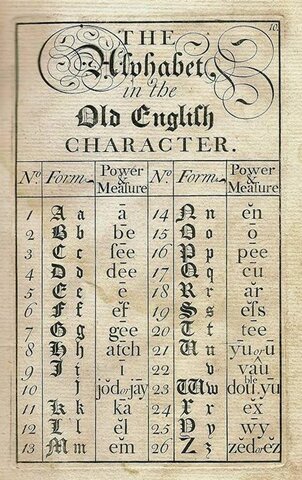 10.
THE
Alphabet
in the
Old Engliſh
CHARACTER.
No. Form Power & Meaſure No. Form Power & Meaſure
1 A a ā 14 N n ĕn
2 B b bēe 15 O o ō
3 C c ſēe 16 P p pee
4 D d dēe 17 Q q cū
5 E e ē 18 R r ăr
6 F f ĕf 19 S s ĕſs
7 G g gēe 20 T t tee
8 H h ātch 21 U u yū or ū
9 J i ī 22 v vâu
10 j jŏd or jāy 23 W w double yū
11 K k kā 24 X x ex
12 L l ĕl 25 Y y wy
13 M m ĕm 26 Z z zĕd or ĕz